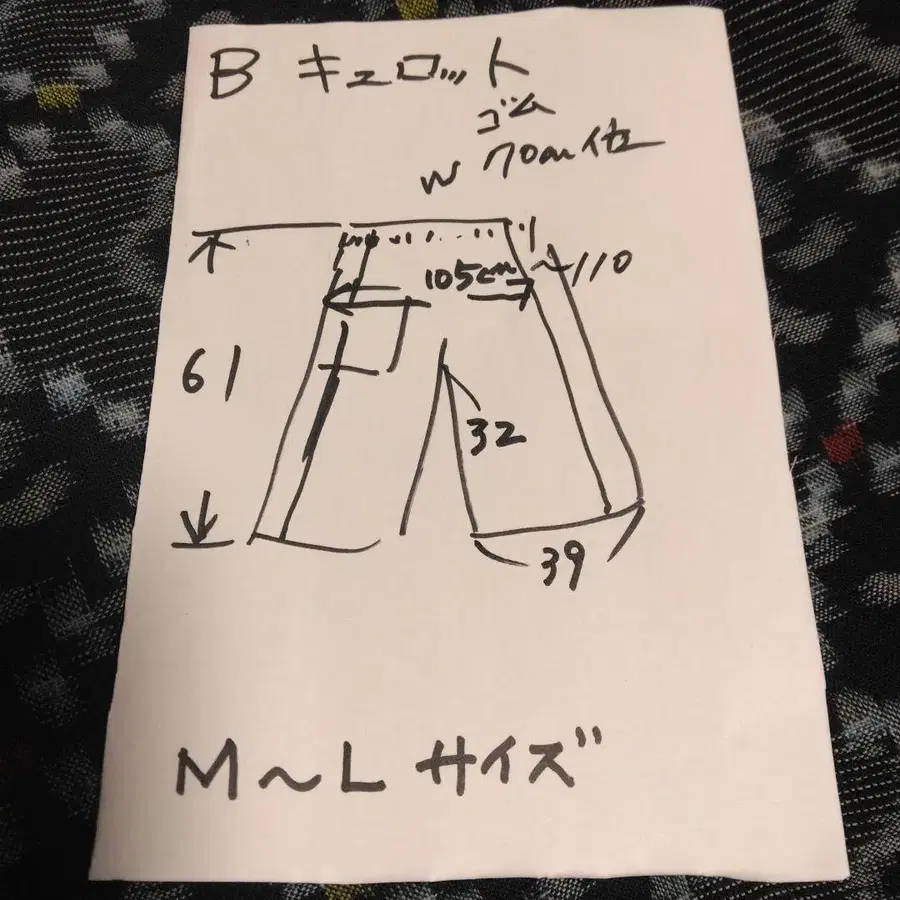 B キュロット
ゴム
W 70cm位
105cm~110
61
32
39
M~Lサイズ